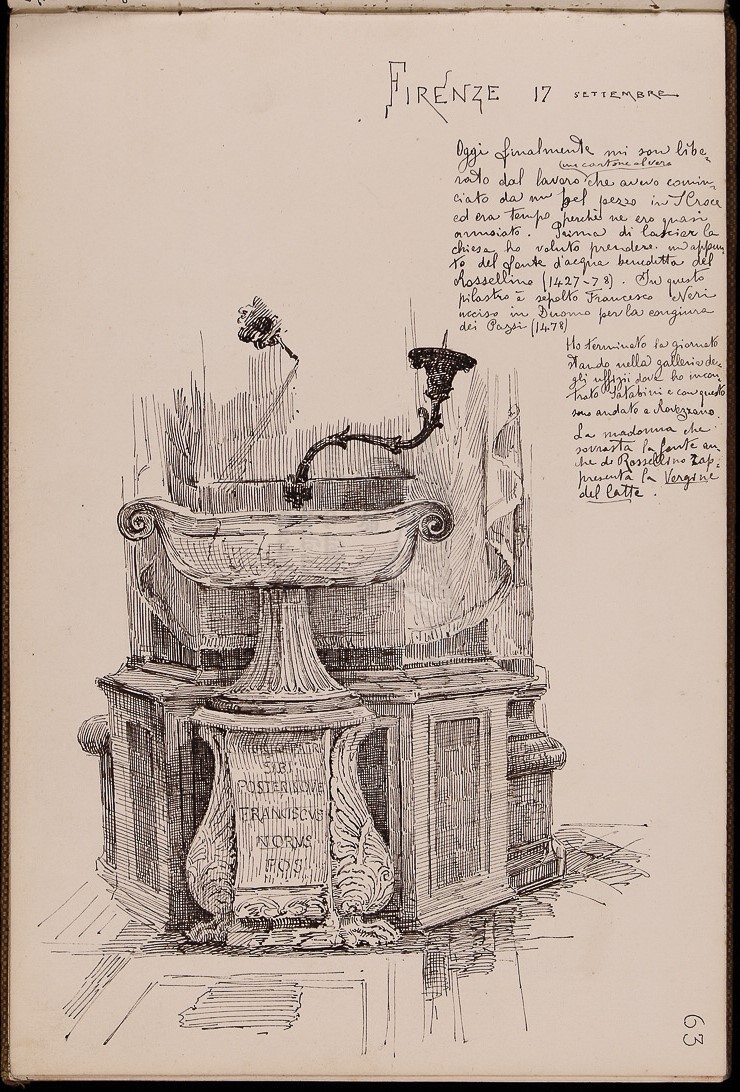 FIRENZE 17 SETTEMBRE
Oggi finalmente mi son libe-
(un cartone al vero
rato dal lavoro che avevo comin-
ciato da un bel pezzo in S Croce
ed era tempo perchè ne ero quasi
annoiato. Prima di lasciar la
chiesa ho voluto prendere un appun-
to del fonte d'acqua benedetta del
Rossellino (1427-78). In questo
pilastro è sepolto Francesco Neri
ucciso in Duomo per la congiura
dei Pazzi (1478)
Ho terminato la giornata
stando nella galleria de-
gli uffizii dove ho incon-
trato e con questo
sono andato a Rovezzano.
La madonna che
sovrasta la fonte an-
che di Rossellino rap-
presenta la Vergine
del latte.
SIBI
POSTERISQUE
FRANCISCVS
NORVS
POS
63